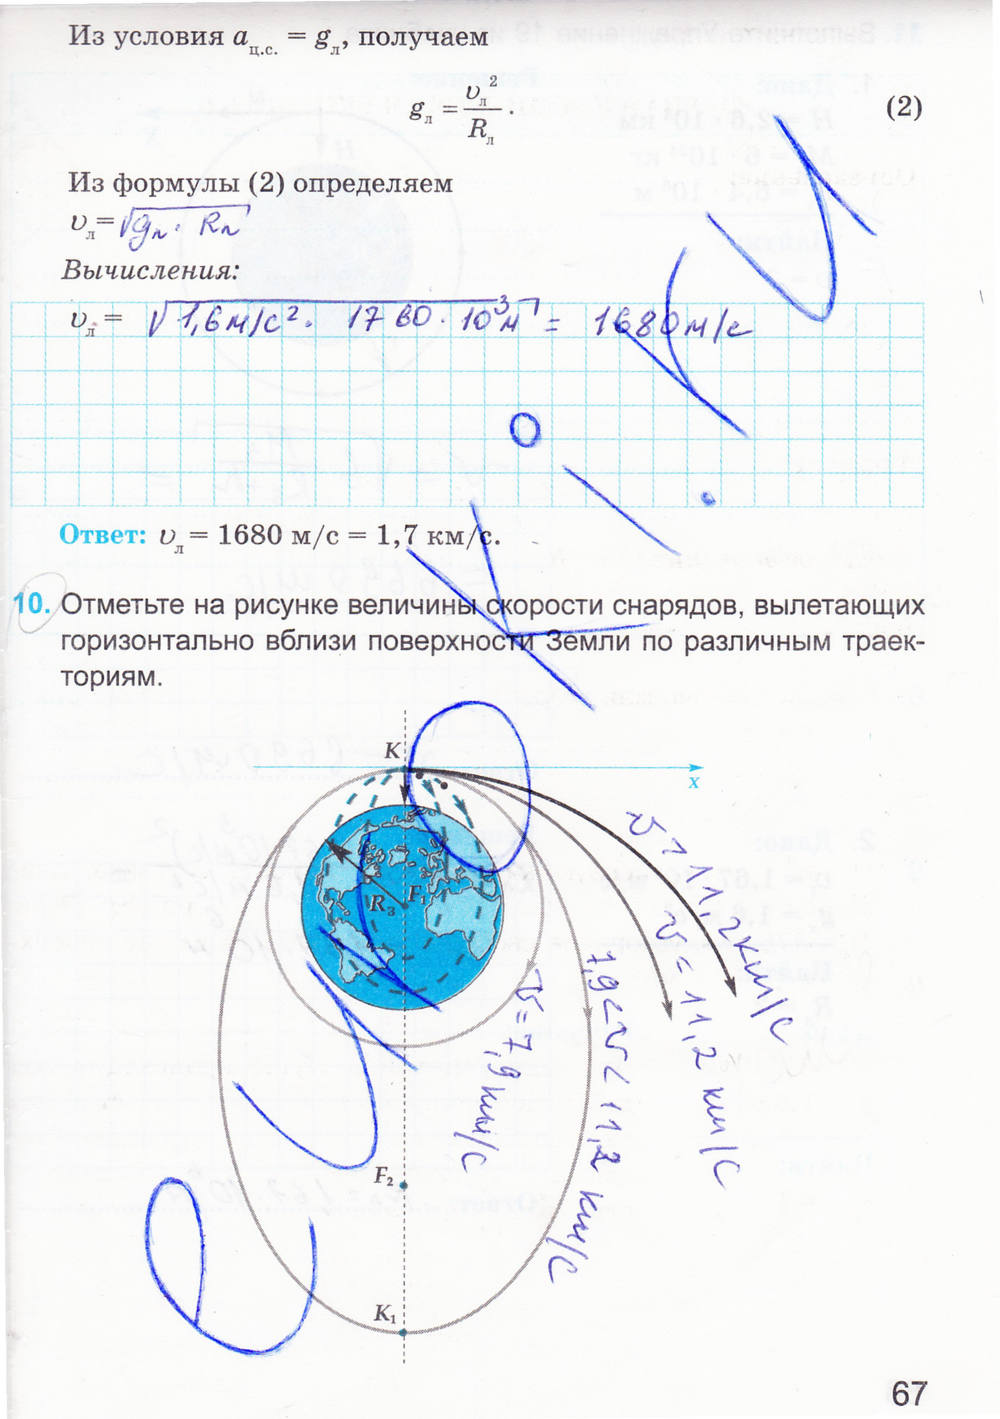 Из условия a ц.с. = g л, получаем
g л = υ л ² / R л . (2)
Из формулы (2) определяем
υ л = √gл · Rл
Вычисления:
υ л = √1,6 м/с² · 1760 · 10³ м = 1680 м/с
Ответ: υ л = 1680 м/с = 1,7 км/с.
10. Отметьте на рисунке величины скорости снарядов, вылетающих
горизонтально вблизи поверхности Земли по различным траек-
ториям.
K
x
R₃ F₁
υ > 11,2 км/с
υ = 11,2 км/с
7,9 < υ < 11,2 км/с
υ = 7,9 км/с
F₂
K₁
67